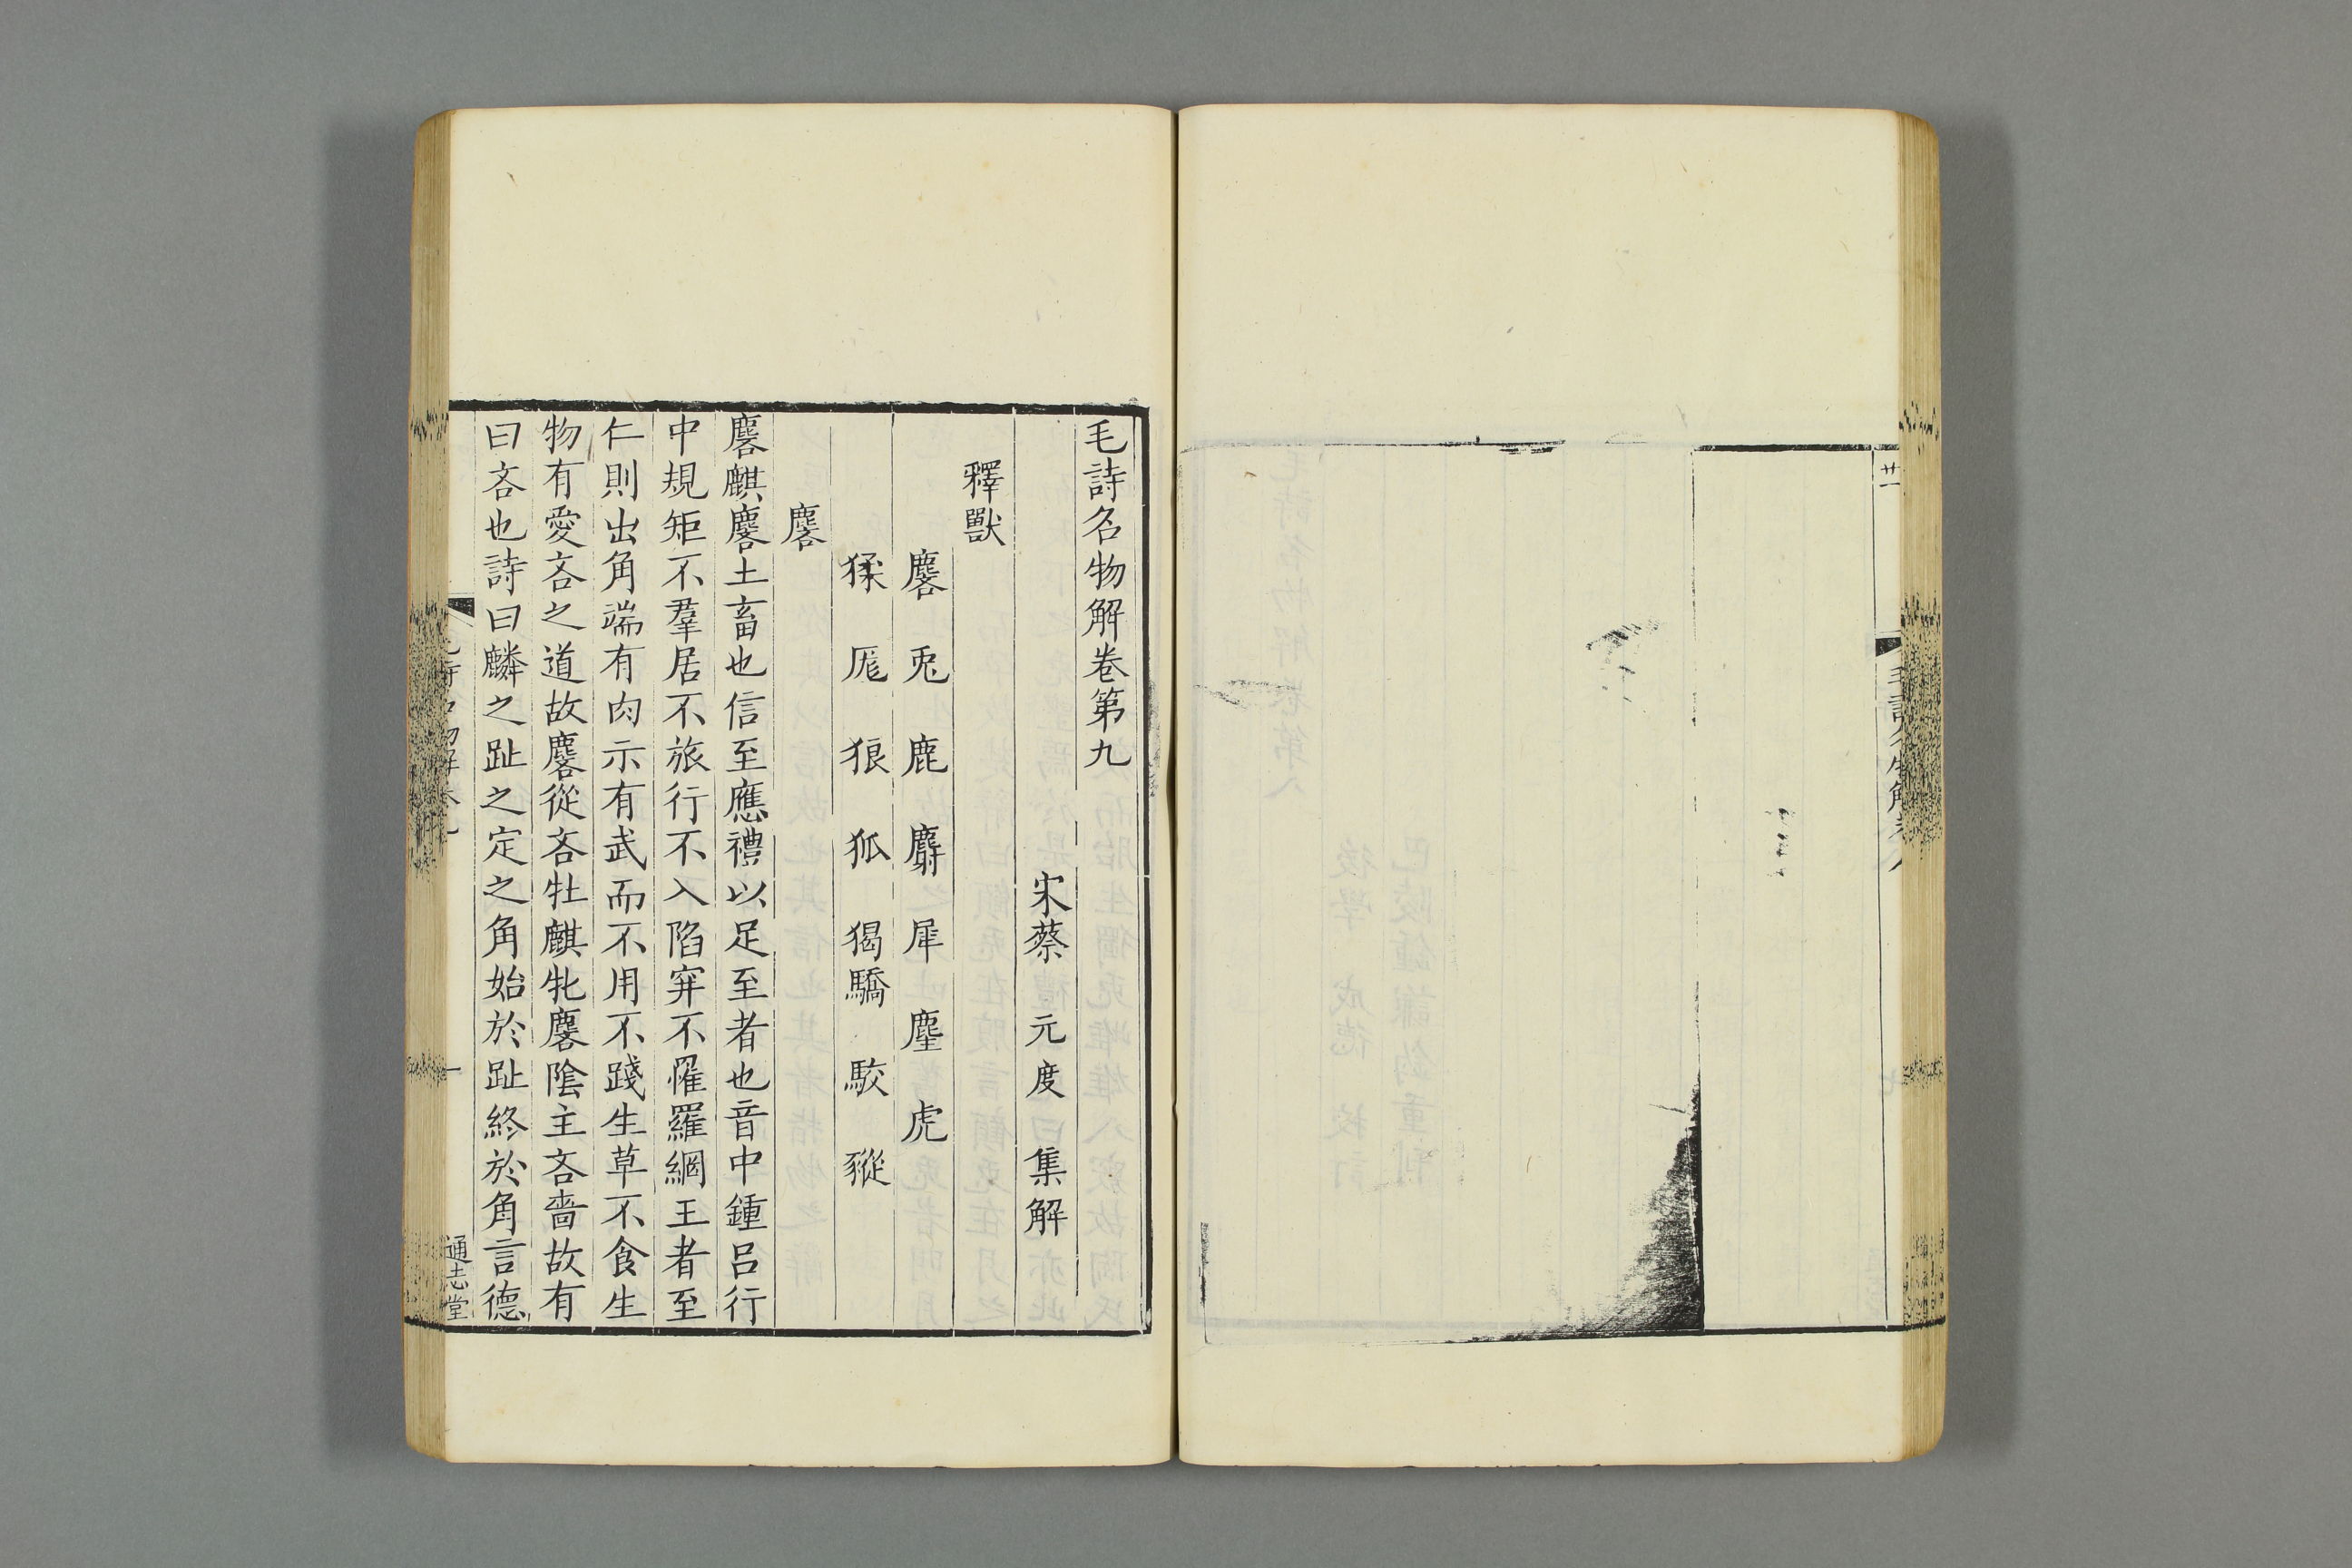 毛詩名物解卷八
毛詩名物解卷第九
宋蔡元度集解
釋獸
麐兎鹿麝犀麈虎
猱尨狼狐猲驕駮豵
麐
麐麒麐土畜也信至應禮以足至者也音中鍾呂行
中規矩不羣居不旅行不入陷穽不罹羅網王者至
仁則出角端有肉示有武而不用不踐生草不食生
物有愛吝之道故麐從吝牡麒牝麐陰主吝嗇故有
曰吝也詩曰麟之趾之定之角始於趾終於角言德
一
通志堂